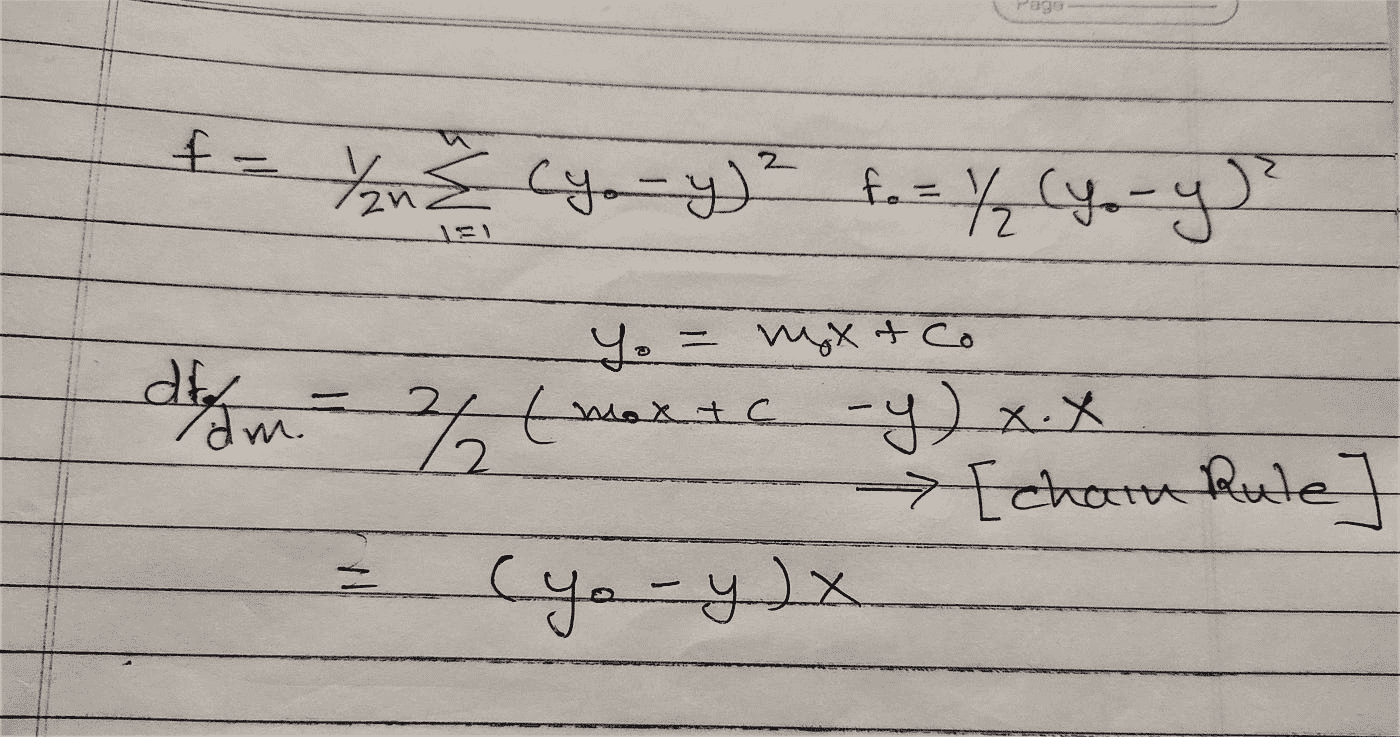 Page
f = 1/2n Σ (y₀ - y)² f₀ = 1/2 (y₀ - y)²
n
i=1
y₀ = m₀x + c₀
df₀/dm = 2/2 (m₀x + c - y) x . x
→ [chain Rule]
= (y₀ - y) x